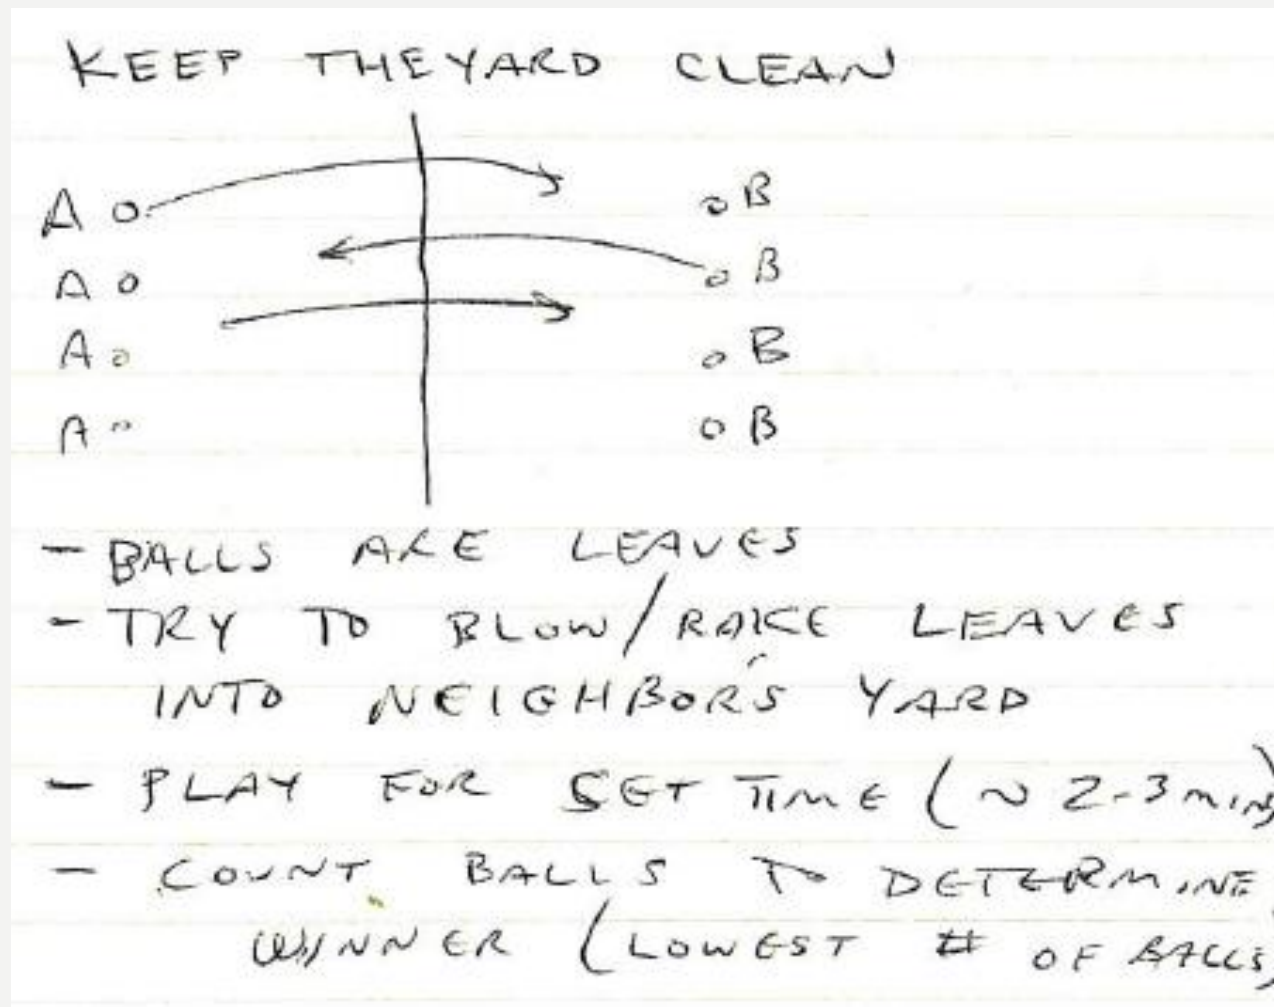 KEEP THE YARD CLEAN
A B
A B
A B
A B
- BALLS ARE LEAVES
- TRY TO BLOW/RAKE LEAVES
INTO NEIGHBOR'S YARD
- PLAY FOR SET TIME (~ 2-3 MIN)
- COUNT BALLS TO DETERMINE
WINNER (LOWEST # OF BALLS)